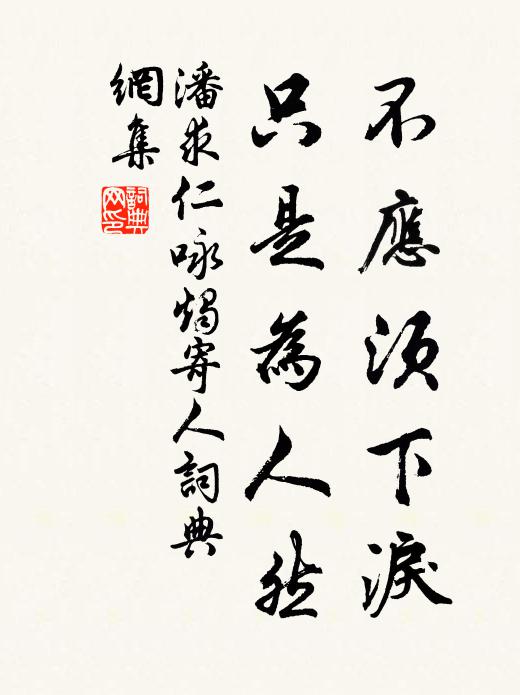 不應須下淚
只是為人然
潘求仁咏燭寄人詞典
網集
詞典
网印